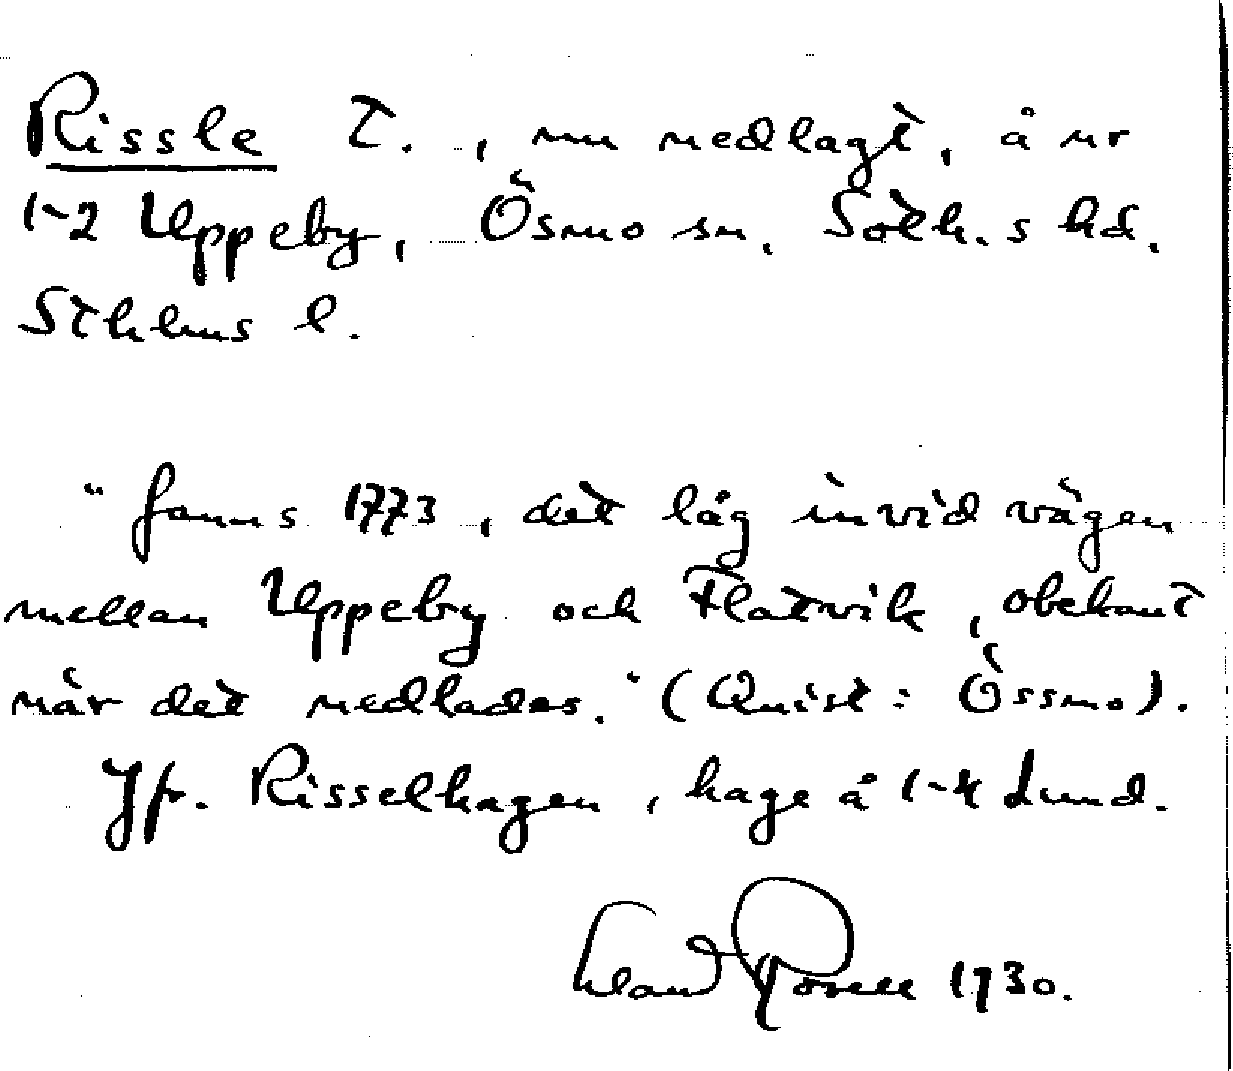 Rissle T., nu nedlagt, å nr
1-2 Uppeby, Ösmo sn. Soth.s hd.
Sthlms l.
"fanns 1773, det låg invid vägen
mellan Uppeby och Flatvik, obekant
när det nedlades." (Quist: Össmo).
Jfr. Risselhagen, hage å 1-4 Lund.
1930.